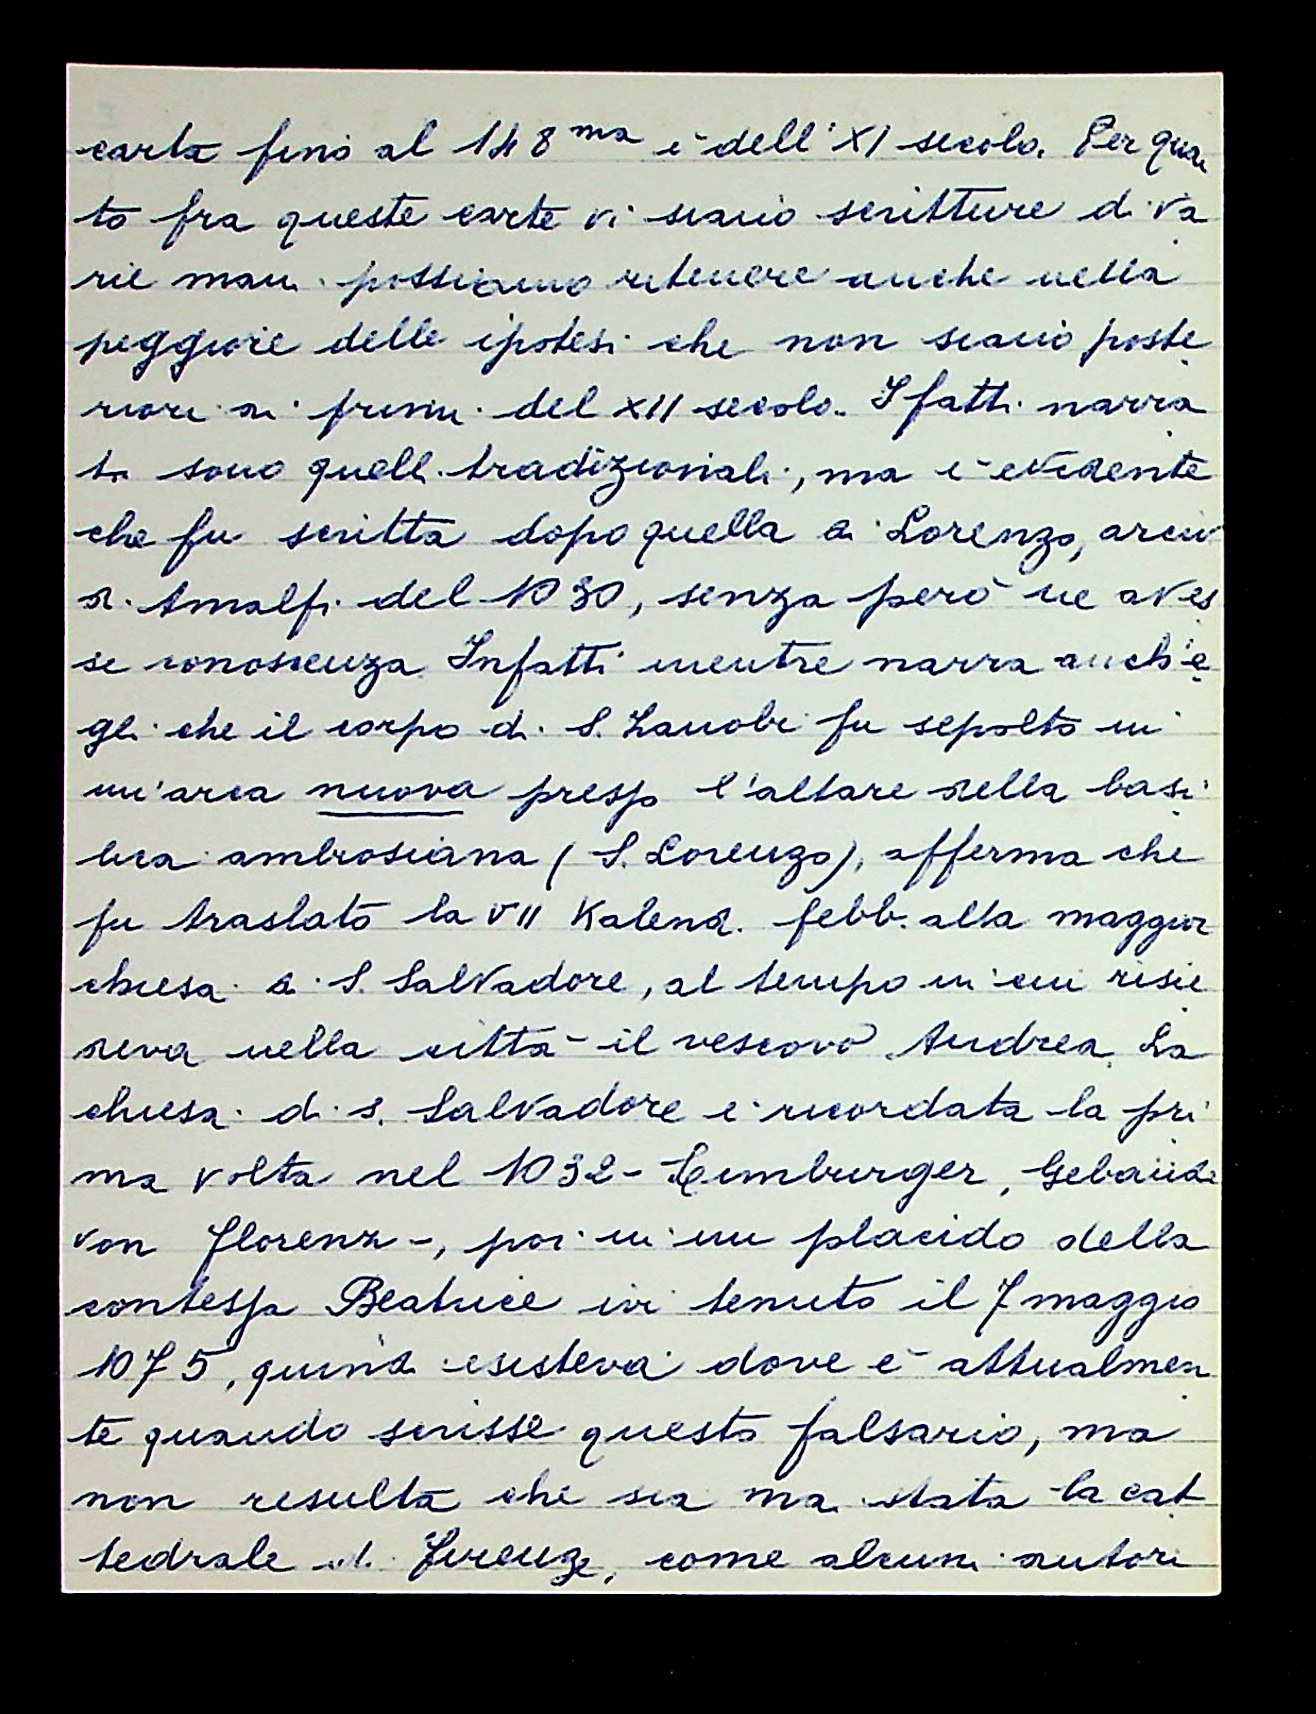 carta fino al 148ma è dell'XI secolo. Per quan
to fra queste carte vi siano scritture di va
rie mani possiamo ritenere anche nella
peggiore delle ipotesi che non siano poste
riori ai primi del XII secolo. I fatti narra
ti sono quelli tradizionali, ma è evidente
che fu scritta dopo quella di Lorenzo, arciv
di Amalfi del 1030, senza però ne aves
se conoscenza. Infatti mentre narra anch'e
gli che il corpo di S. Zanobi fu sepolto in
un'arca nuova presso l'altare della basi
lica ambrosiana (S. Lorenzo), afferma che
fu traslato la VII Kalend. febb. alla maggior
chiesa di S. Salvadore, al tempo in cui risie
deva nella città il vescovo Andrea. La
chiesa di S. Salvadore è ricordata la pri
ma volta nel 1032 - Limburger, Gebäude
von Florenz -, poi in un placido della
contessa Beatrice ivi tenuto il 7 maggio
1075, quindi esisteva dove è attualmen
te quando scrisse questo falsario, ma
non resulta che sia mai stata la cat
tedrale di Firenze, come alcuni autori